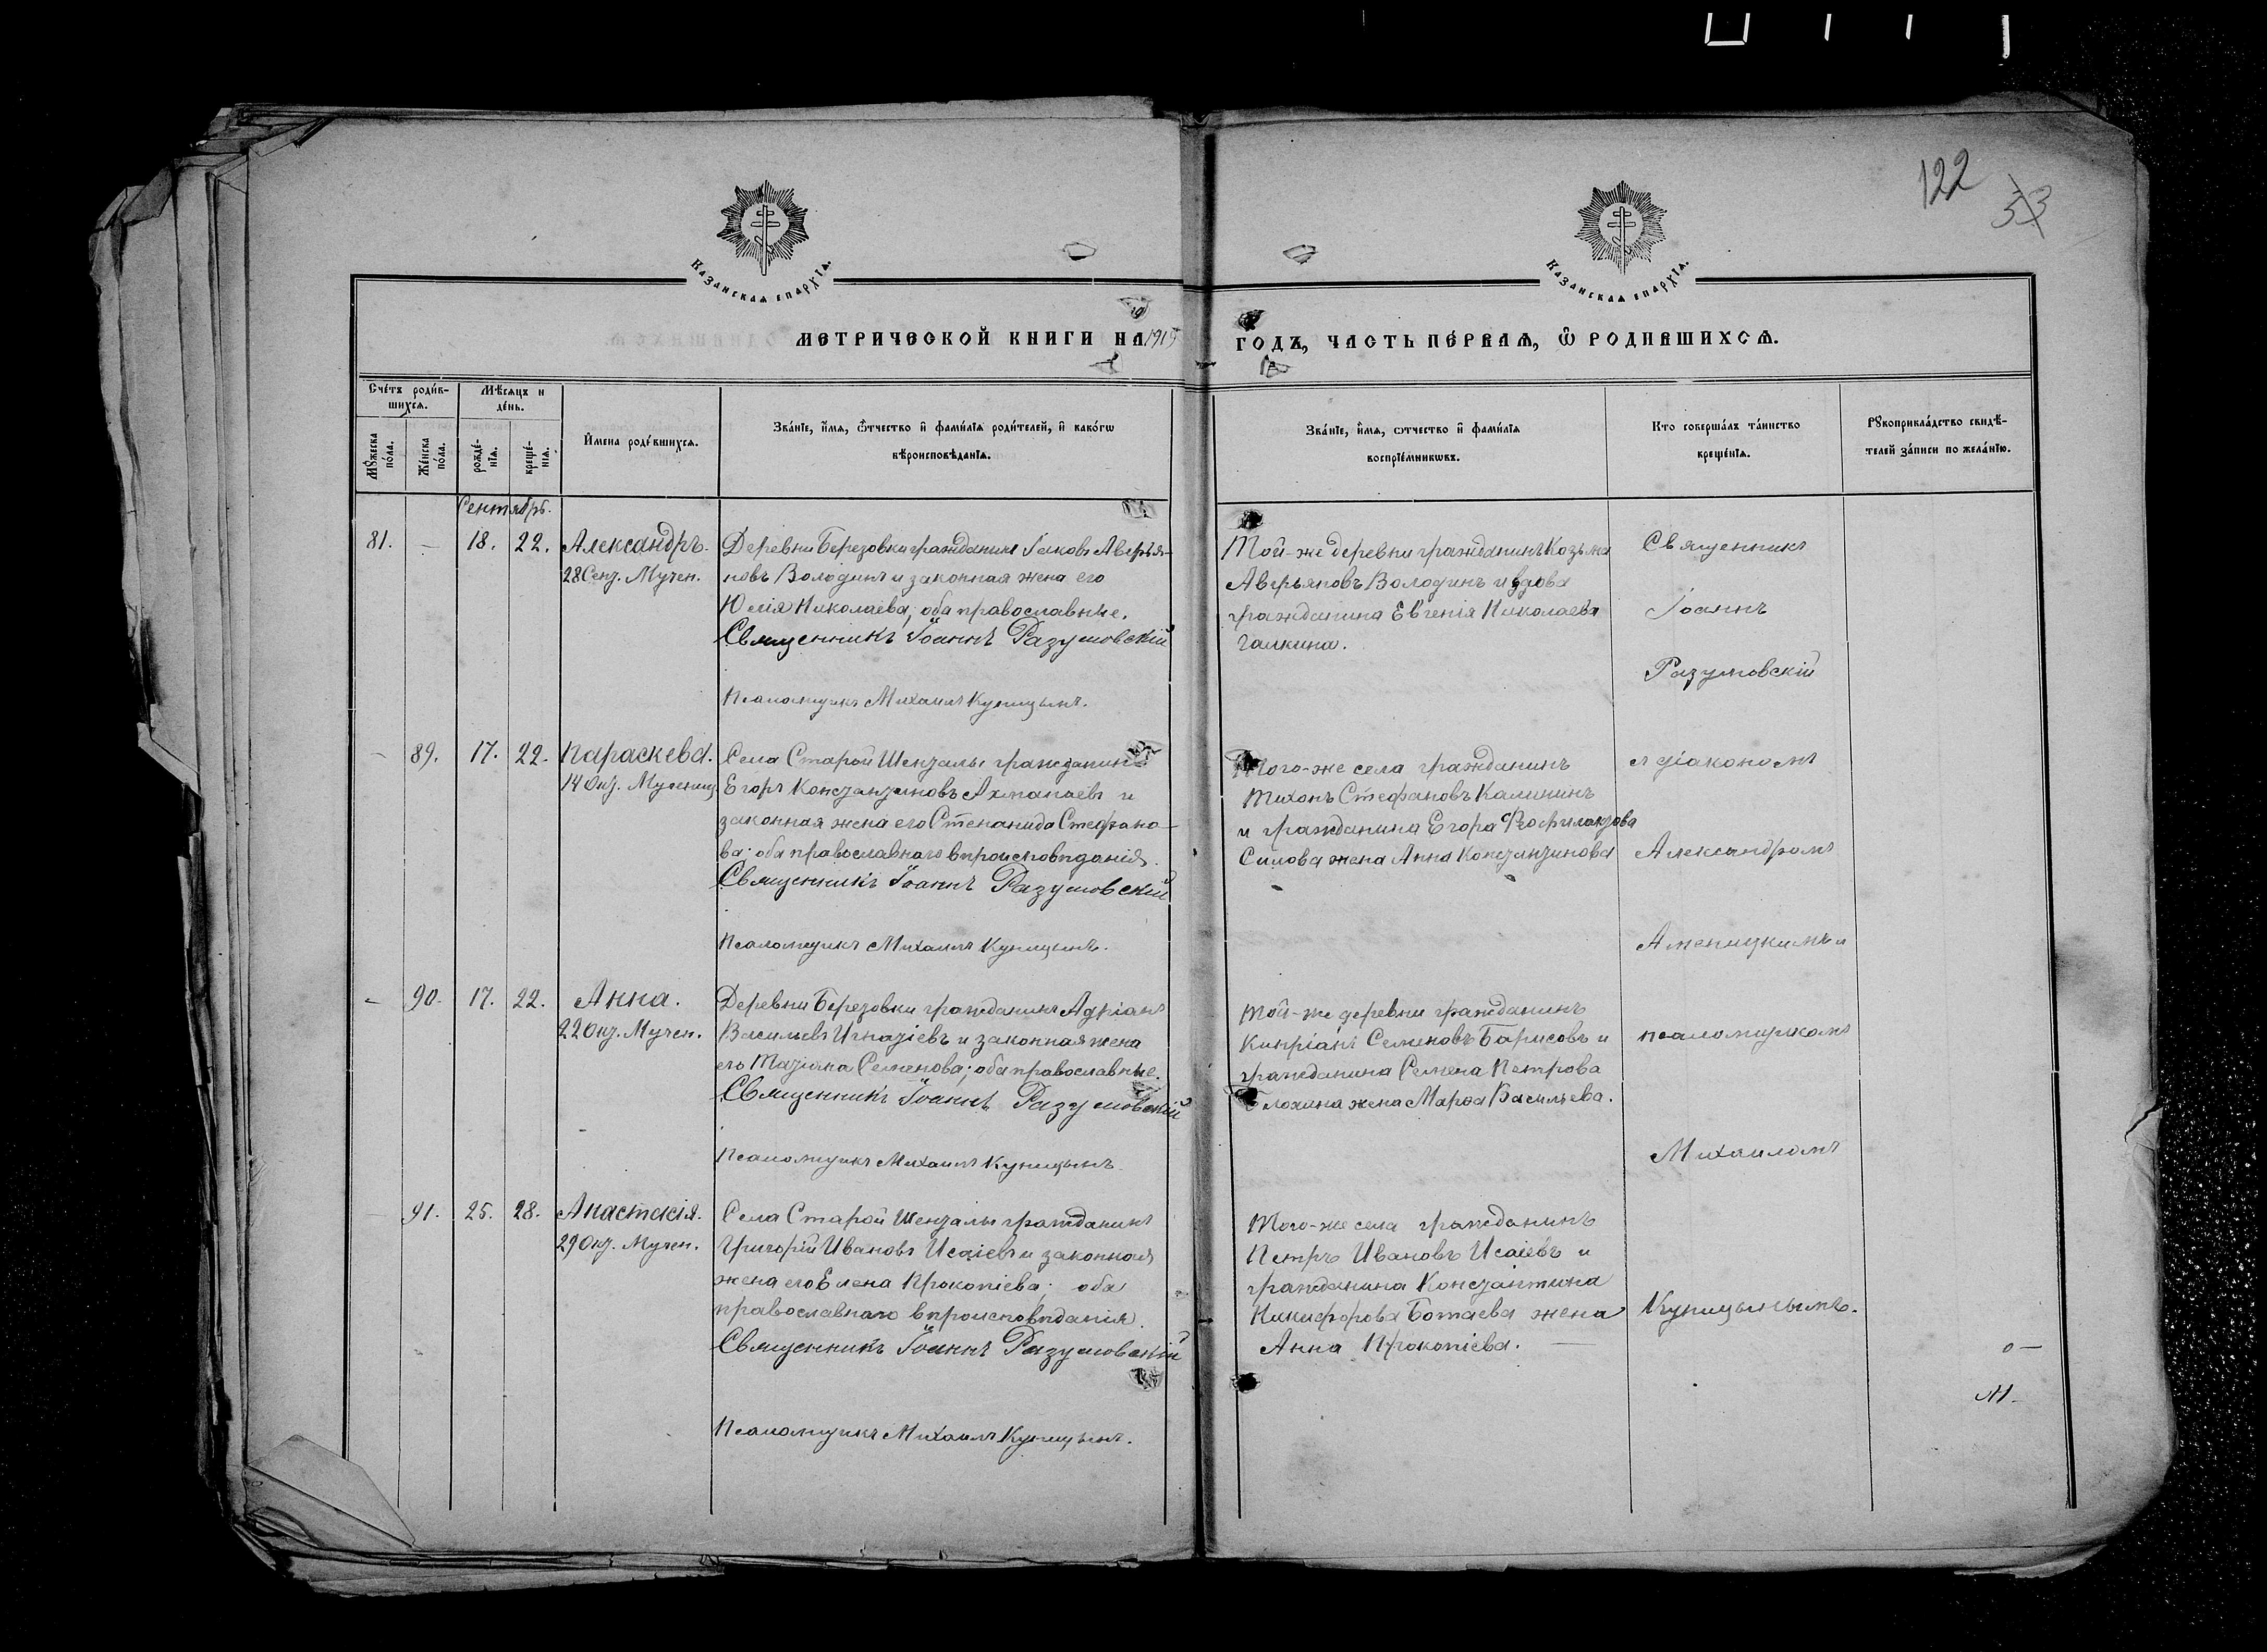 122
53
Казанская епархіѧ.
Казанская епархіѧ.
МЕТРИЧЕСКОЙ КНИГИ НА 1919 ГОДЪ, ЧАСТЬ ПЕ́РВАЯ, Ѿ РОДИВШИХСѦ.
Сче́тъ роди́в-
шихсѧ.
Мѣ́сяцъ и
де́нь.
Мꙋ́жеска
по́ла.
Же́нска
по́ла.
рожде́-
нїѧ.
креще́-
нїѧ.
И҆мена роди́вшихсѧ.
Зва́нїе, и҆́мѧ, ѻ҆́тчество и҆ фами́лїѧ роди́телей, и҆ како́гѡ
вѣроисповѣ́данїѧ.
Зва́нїе, и҆́мѧ, ѻтчество и҆ фами́лїѧ
воспрїе́мникѡвъ.
Кто соверша́лъ та́инство
креще́нїѧ.
Рꙋкоприкла́дство свидѣ́-
телей за́писи по жела́нїю.
Сентябрь.
81. — 18. 22. Александръ.
28 Сент. Мучен.
Деревни Березовки гражданинъ Іаковъ Аверья-
новъ Володинъ и законная жена его
Юлія Николаева; оба православные.
Священникъ Іоаннъ Разумовскій
Псаломщикъ Михаилъ Куницынъ.
Той-же деревни гражданинъ Козьма
Аверьяновъ Володинъ и вдова
гражданина Евгенія Николаева
Галкина.
Священникъ
Іоаннъ
Разумовскій
— 89. 17. 22. Параскева.
14 Окт. Мучениц.
Села Старой Шентале гражданинъ
Егоръ Константиновъ Ахмапаевъ и
законная жена его Степанида Стефано-
ва; оба православнаго вѣроисповѣданія.
Священникъ Іоаннъ Разумовскій
Псаломщикъ Михаилъ Куницынъ.
Того-же села гражданинъ
Тихонъ Стефановъ Калининъ
и гражданина Егора Феофилактова
Силова жена Анна Константинова
съ діакономъ
Александромъ
Аменицкимъ и
— 90. 17. 22. Анна.
22 Окт. Мучен.
Деревни Березовки гражданинъ Адріанъ
Васильевъ Игнатіевъ и законная жена
его Татіана Семенова; оба православные.
Священникъ Іоаннъ Разумовскій
Псаломщикъ Михаилъ Куницынъ.
Той-же деревни гражданинъ
Кипріанъ Семеновъ Барисовъ и
гражданина Семена Петрова
Блохина жена Марѳа Васильева.
псаломщикомъ
Михаиломъ
— 91. 25. 28. Анастасія.
29 Окт. Мучен.
Села Старой Шенталы гражданинъ
Григорій Ивановъ Исаіевъ и законная
жена его Елена Прокопіева; оба
православнаго вѣроисповѣданія.
Священникъ Іоаннъ Разумовскій
Псаломщикъ Михаилъ Куницынъ.
Того-же села гражданинъ
Петръ Ивановъ Исаіевъ и
гражданина Константина
Никифорова Ботаева жена
Анна Прокопіева. —
Куницынымъ.